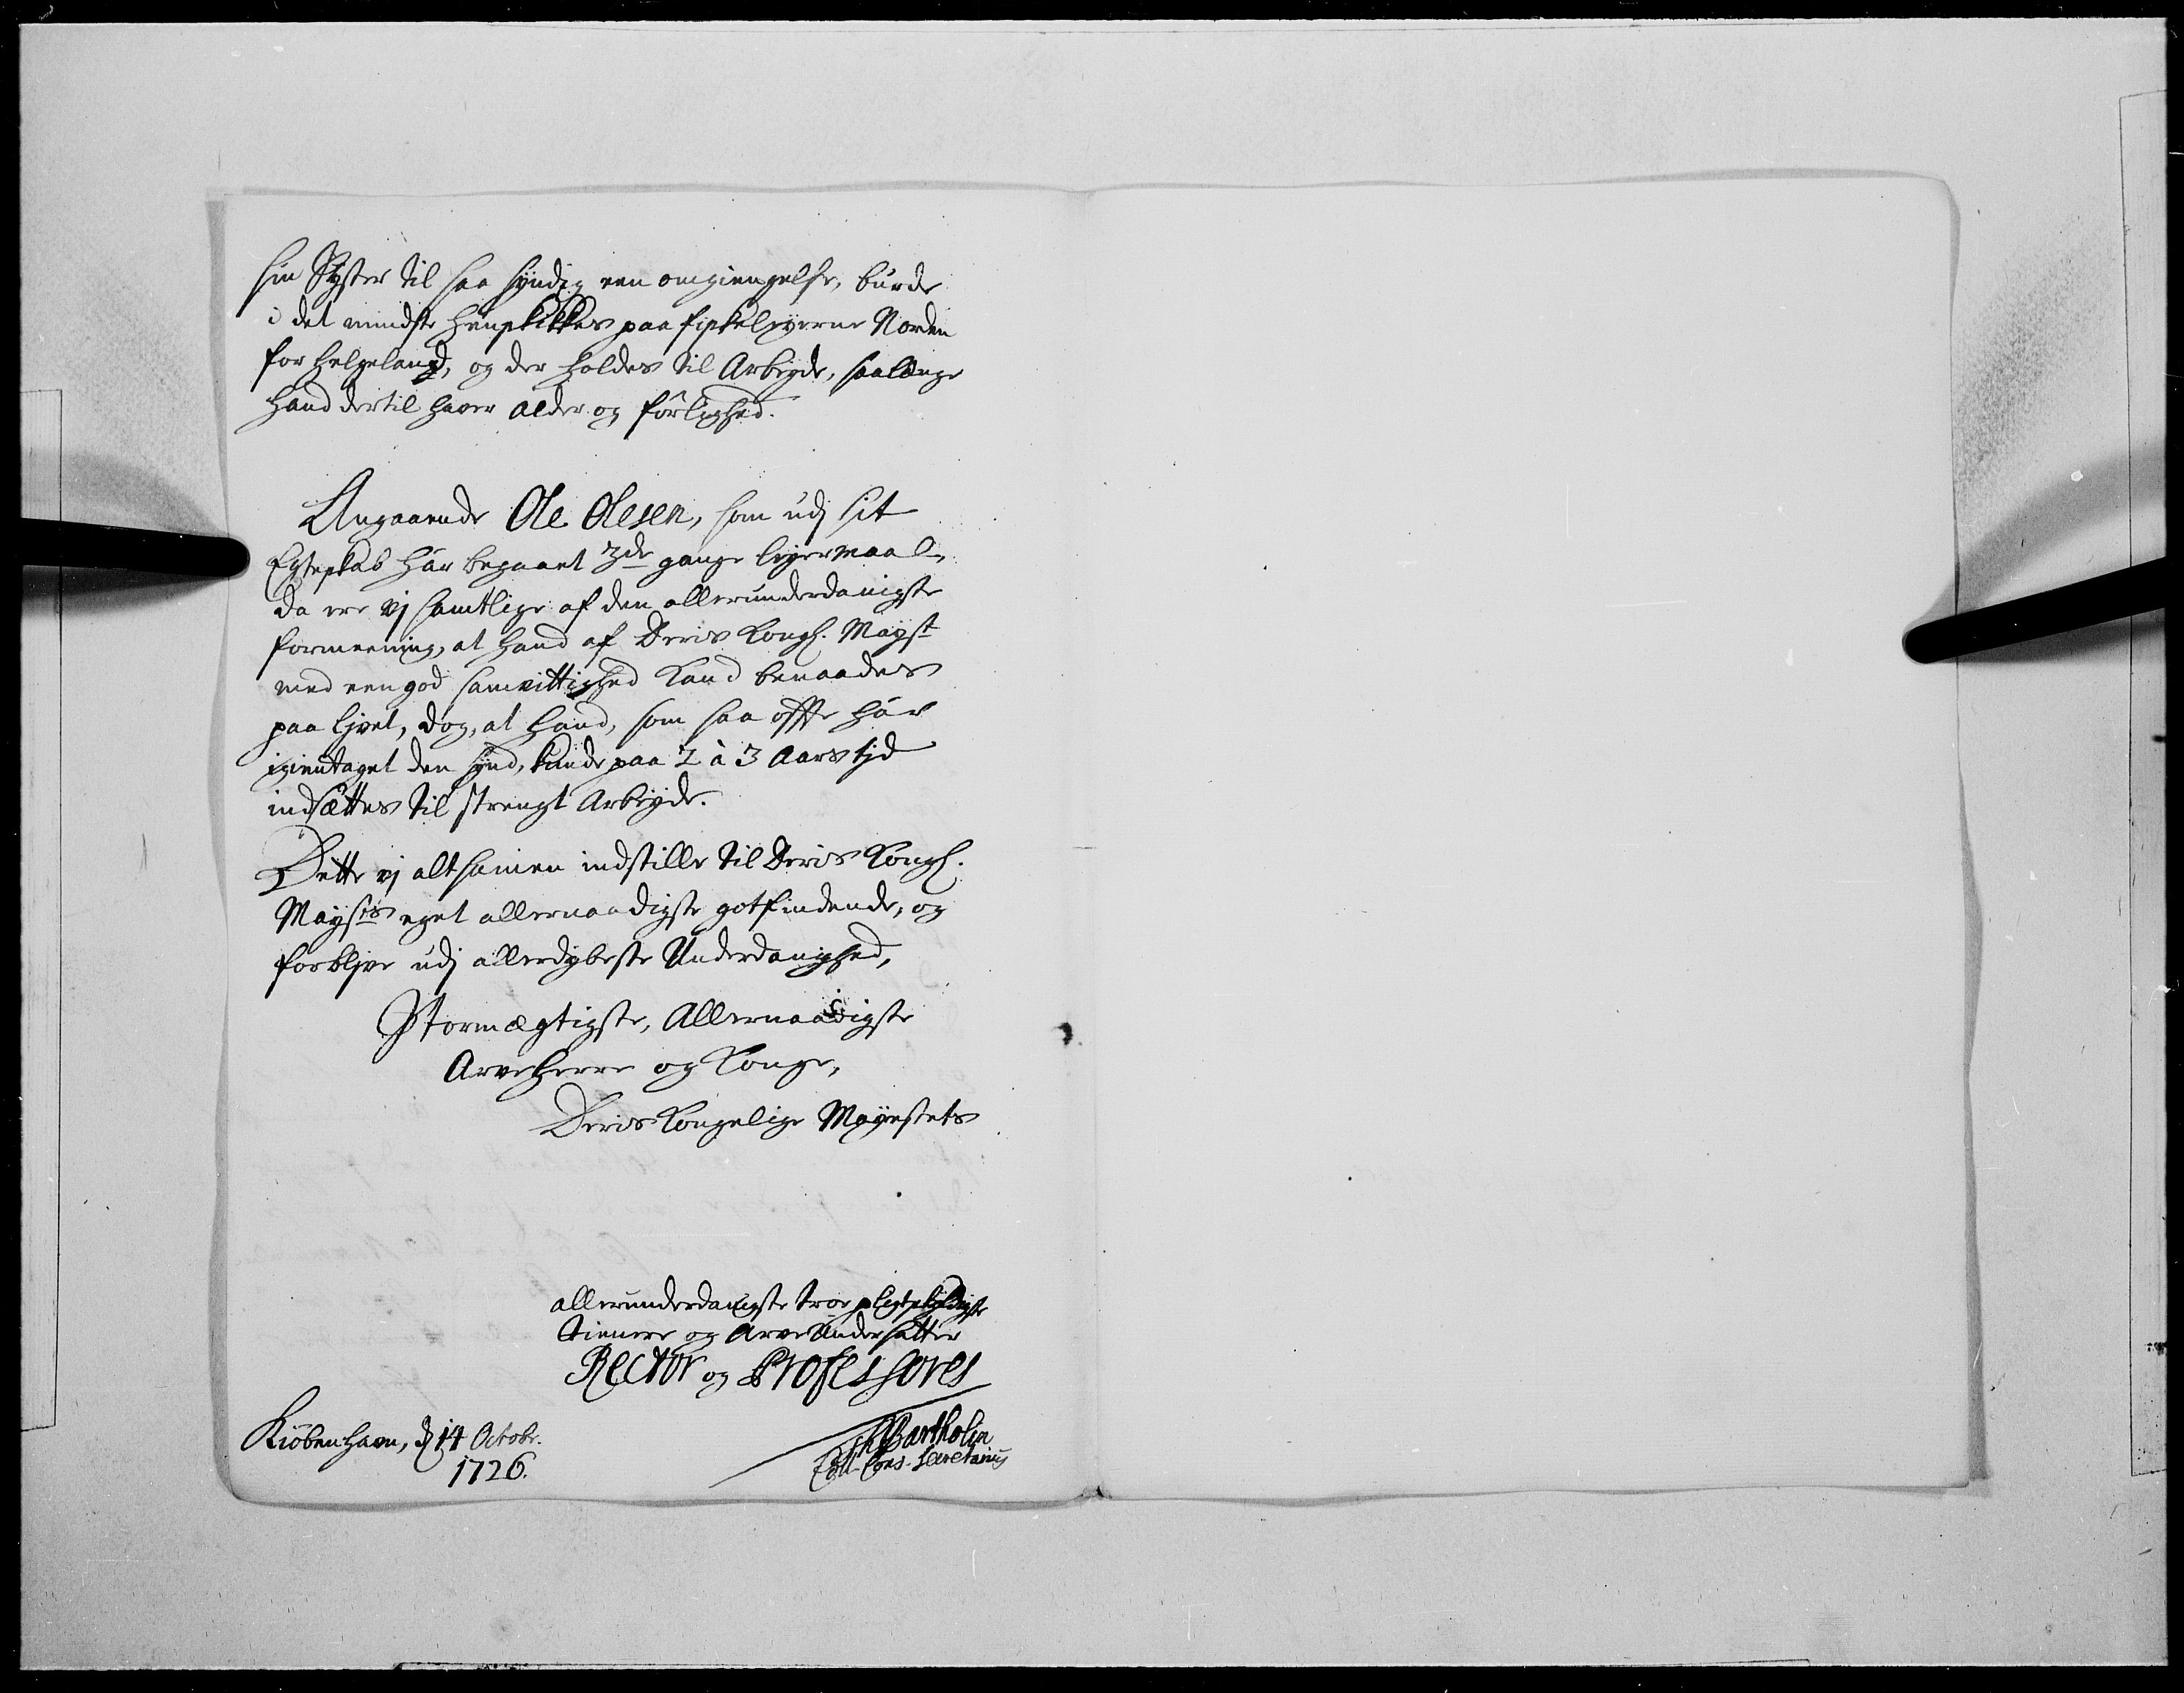 sin Syster til saa syndig een omgiengelse, burde
i det mindste henskikkes paa fiskeleyerne Norden
for Helgeland, og der holdes til Arbeyde, saalænge
hand dertil haver alder og förlighed.
Angaaende Ole Olesen, som udj sit
Egteskab här begaaet 3de gange leyermaal,
da ere vj samtlige af den allerunderdanigste
formeening, at hand af Deris Kongl. Mayst
med een god samvittighed kand benaades
paa ljvet, dog, at hand, som saa offte här
igientaget den synd, kunde paa 2 à 3 Aars tjd
indsættes til strengt Arbeyde.
Dette vj altsamen indstille til Deris Kongl.
Maysts eget allernaadigste gotfindende, og
forbljve udj allerdybeste Underdanighed,
Stormægtigste, Allernaadigste
Arveherre og Konge,
Deris Kongelige Mayestets
allerunderdanigste troe pligtskyldigste
tienere og Arve Undersatter
Rector og Professores
Kiöbenhavn, d 14 Octobr.
1726.
Bartholin
Coll. Cons. Secretarius